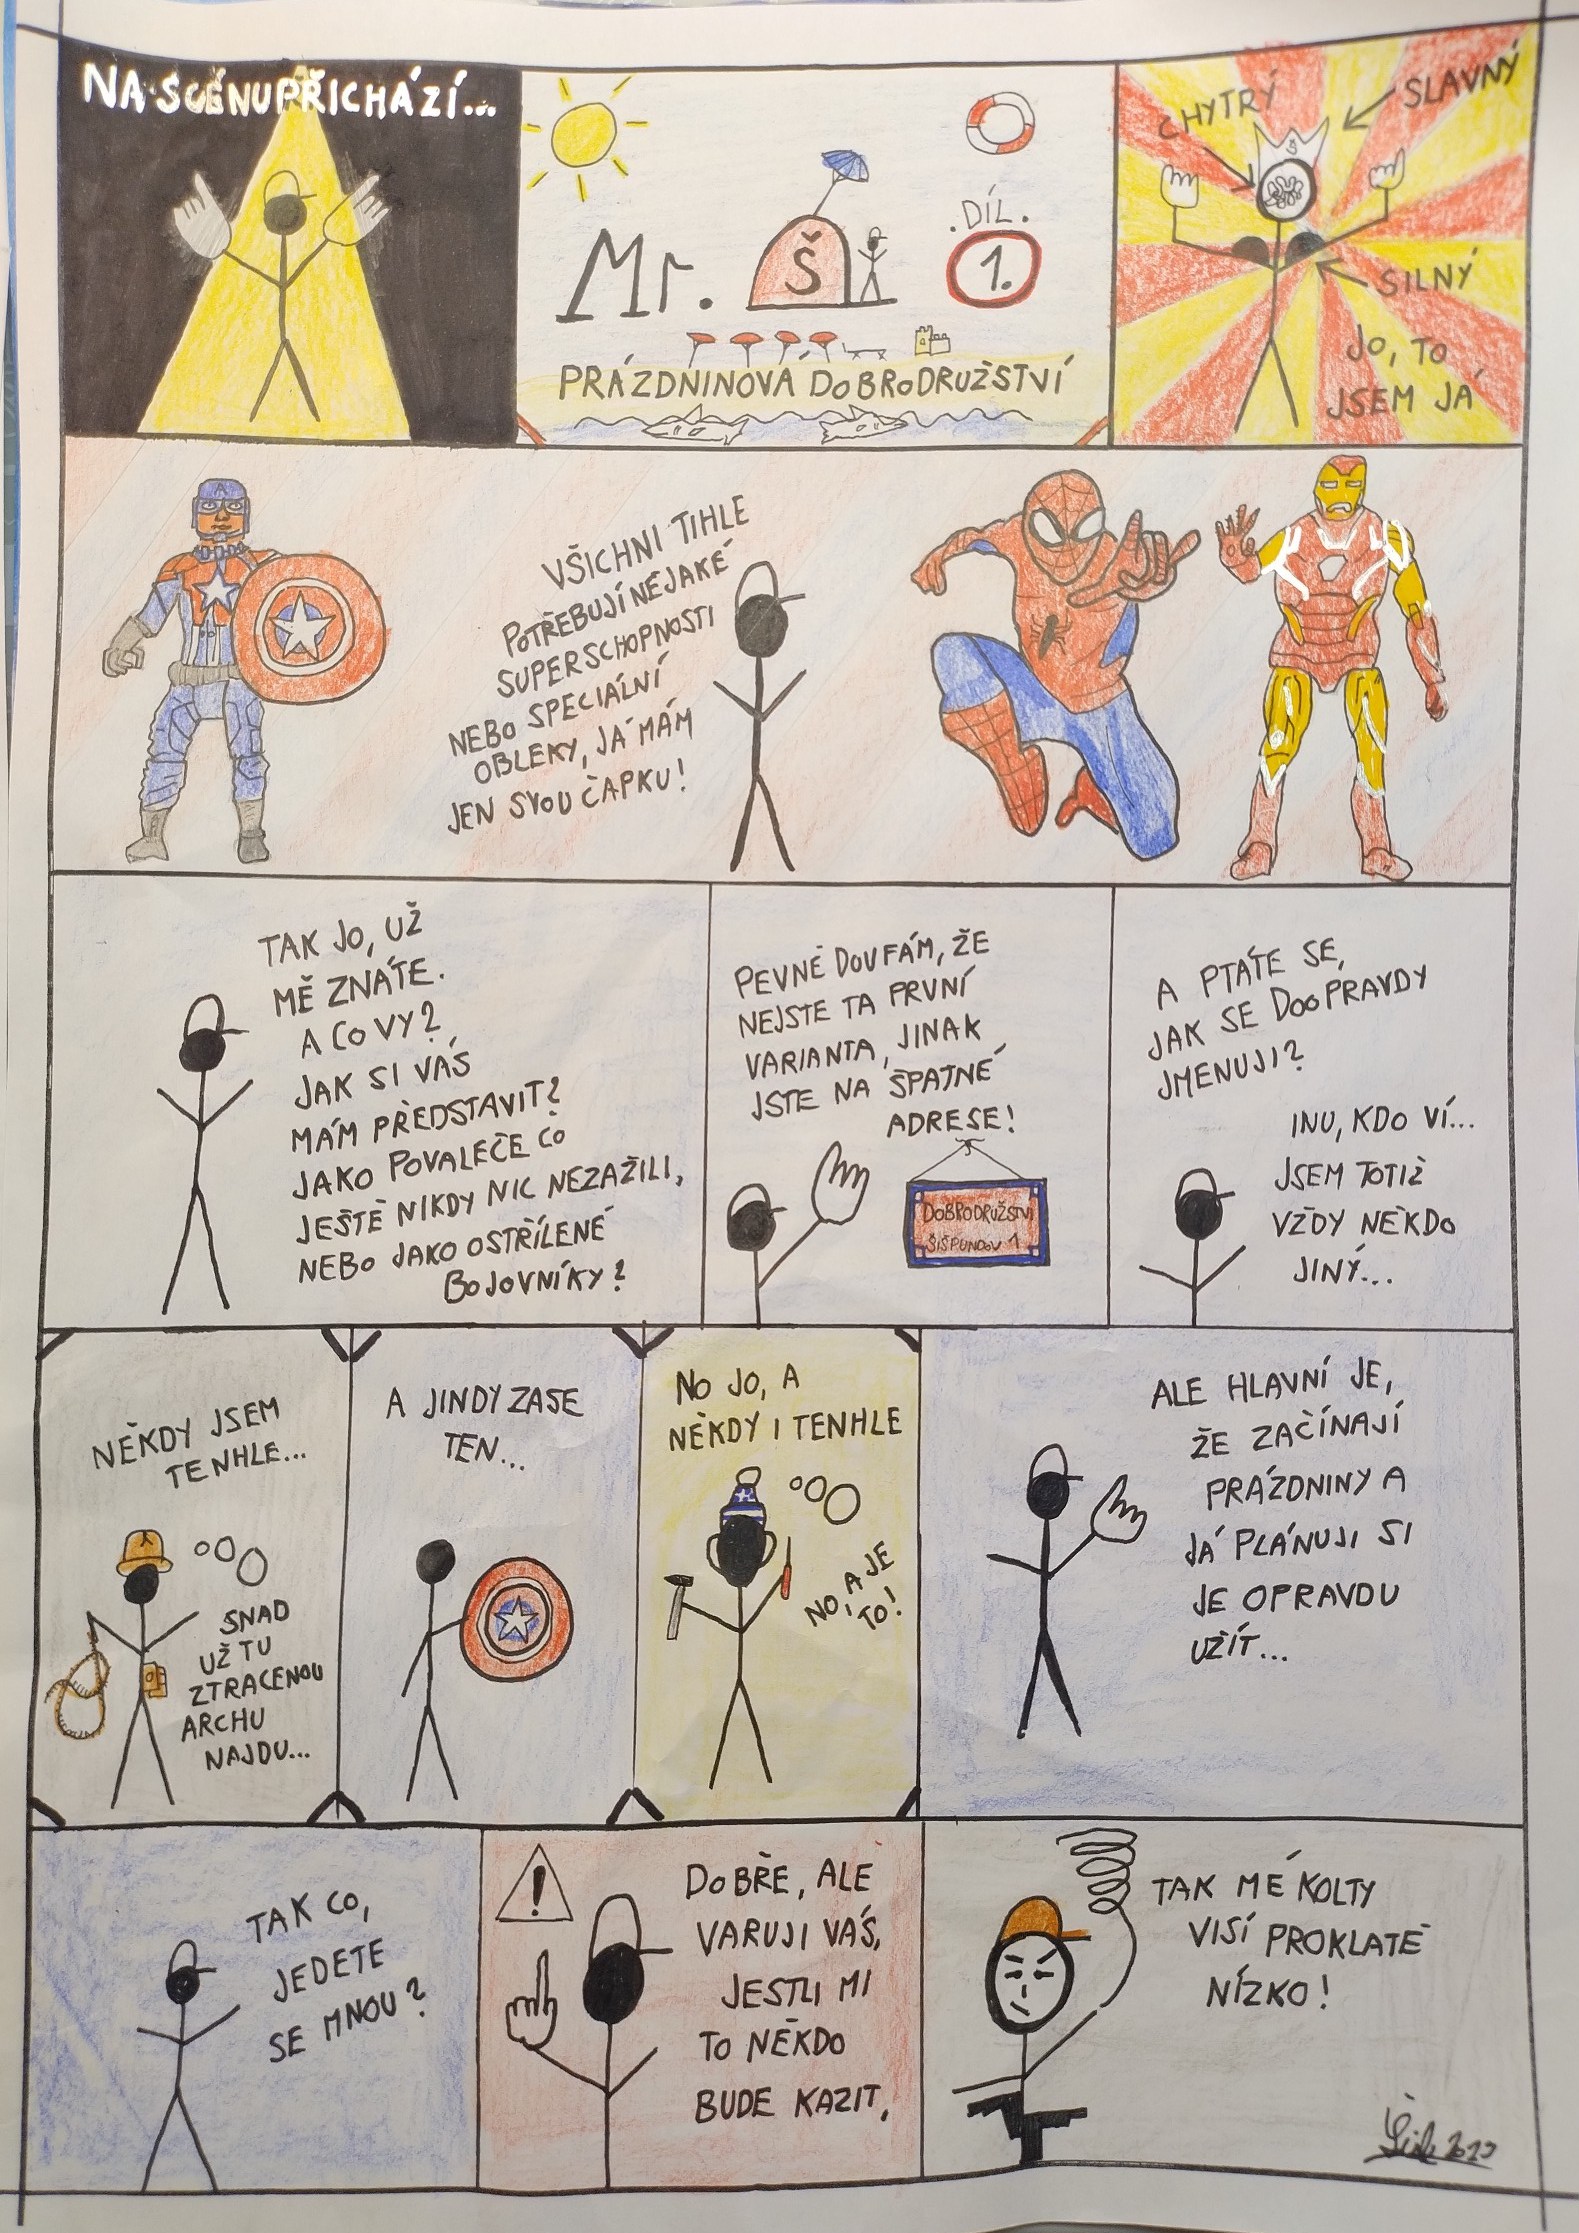 NA SCÉNU PŘICHÁZÍ...
Mr. Š
.DÍL.
1.
PRÁZDNINOVÁ DOBRODRUŽSTVÍ
CHYTRÝ
SLAVNÝ
Š
SILNÝ
JO, TO
JSEM JÁ
A
VŠICHNI TIHLE
POTŘEBUJÍ NĚJAKÉ
SUPERSCHOPNOSTI
NEBO SPECIÁLNÍ
OBLEKY, JÁ MÁM
JEN SVOU ČAPKU!
TAK JO, UŽ
MĚ ZNÁTE.
A CO VY?
JAK SI VÁS
MÁM PŘEDSTAVIT?
JAKO POVALEČE CO
JEŠTĚ NIKDY NIC NEZAŽILI,
NEBO JAKO OSTŘÍLENÉ
BOJOVNÍKY?
PEVNĚ DOUFÁM, ŽE
NEJSTE TA PRVNÍ
VARIANTA, JINAK
JSTE NA ŠPATNÉ
ADRESE!
DOBRODRUŽSTVÍ
ŠIŠPUNDOV 1
A PTÁTE SE,
JAK SE DOOPRAVDY
JMENUJI?
INU, KDO VÍ...
JSEM TOTIŽ
VŽDY NĚKDO
JINÝ...
NĚKDY JSEM
TENHLE...
SNAD
UŽ TU
ZTRACENOU
ARCHU
NAJDU...
A JINDY ZASE
TEN...
NO JO, A
NĚKDY I TENHLE
NO, A JE
TO!
ALE HLAVNÍ JE,
ŽE ZAČÍNAJÍ
PRÁZDNINY A
JÁ PLÁNUJI SI
JE OPRAVDU
UŽÍT...
TAK CO,
JEDETE
SE MNOU?
!
DOBŘE, ALE
VARUJI VÁS,
JESTLI MI
TO NĚKDO
BUDE KAZIT,
TAK MÉ KOLTY
VISÍ PROKLATĚ
NÍZKO!